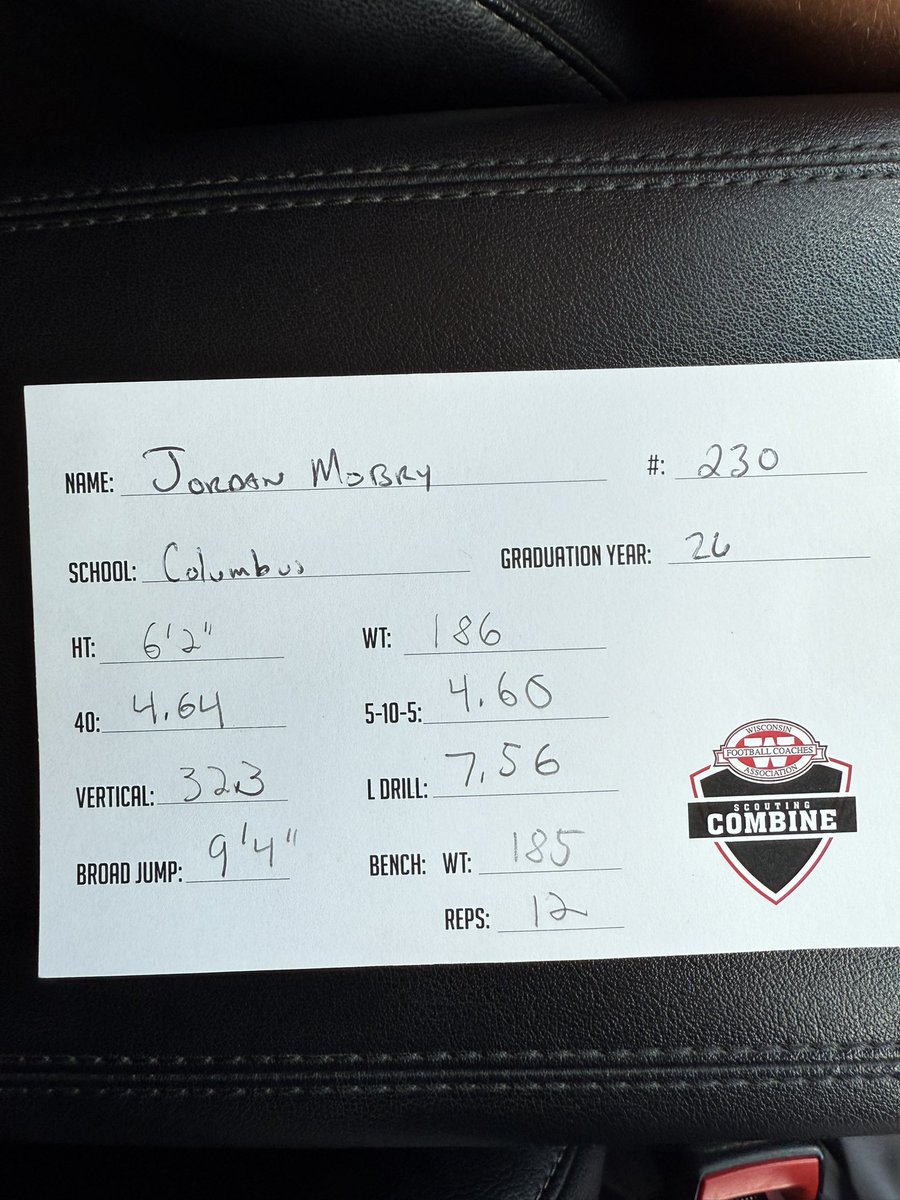 NAME: JORDAN MOBRY #: 230
SCHOOL: Columbus GRADUATION YEAR: 26
HT: 6'2" WT: 186
40: 4.64 5-10-5: 4.60
VERTICAL: 32.3 L DRILL: 7.56
BROAD JUMP: 9'4" BENCH: WT: 185
REPS: 12
WISCONSIN
FOOTBALL COACHES
ASSOCIATION
SCOUTING
COMBINE